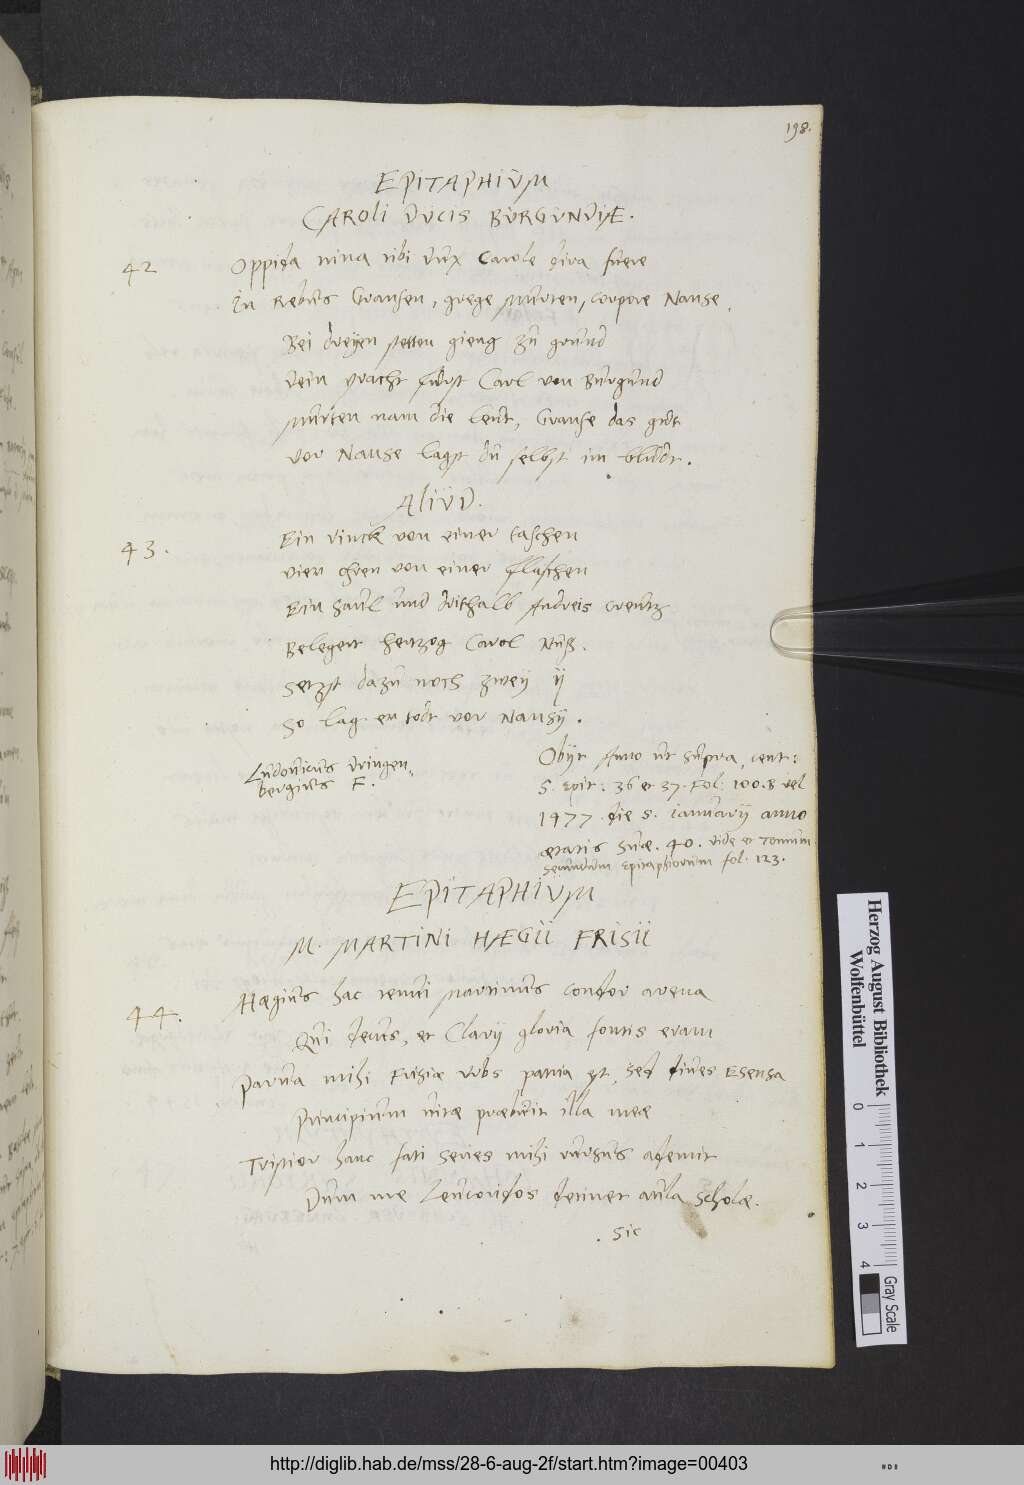 198.
EPITAPHIUM
CAROLI DUCIS BURGUNDIÆ.
42 Oppida trina tibi Dux Carole dira fuere
In Rebus Gransen, grege Murten, corpore Nanse.
Bei dreyen stetten gieng zu grund
Dein pracht fürst Carl von Burgund
Murten nam die leut, Granse das gut
Vor Nanse lagst du selbst im blüdt.
ALIUD.
43. Ein rinck von einer taschen
Vier ohren von einer flaschen
Ein saul und drithalb Andreis creutz
Belegert hertzog Carol Nuß.
Setzst dazu noch zwey ij
So lag er todt vor Nansij.
Ludovicus Dringen=
bergius F.
Obijt Anno ut supra, cent:
5. Epit: 36 et 37. Fol: 100.B vel
1477 die 5. ianuarij anno
ætatis suæ. 40. vide et Tomum
secundum Epitaphiorum fol. 123.
EPITAPHIUM
M. MARTINI HÆGII FRISII
44. Hægius hac tenui Martinus condor arena
Qui decus, et Clarij gloria fontis eram
Parua mihi Frisiæ urbs patria est, sed diues Esensa
Principium uitæ præbuit illa meæ
Tristior hanc fati series mihi rursus ademit
Dum me Leucoridos detinet aula scholæ.
Sic
Herzog August Bibliothek
Wolfenbüttel
0 1 2 3 4
Gray Scale
http://diglib.hab.de/mss/28-6-aug-2f/start.htm?image=00403